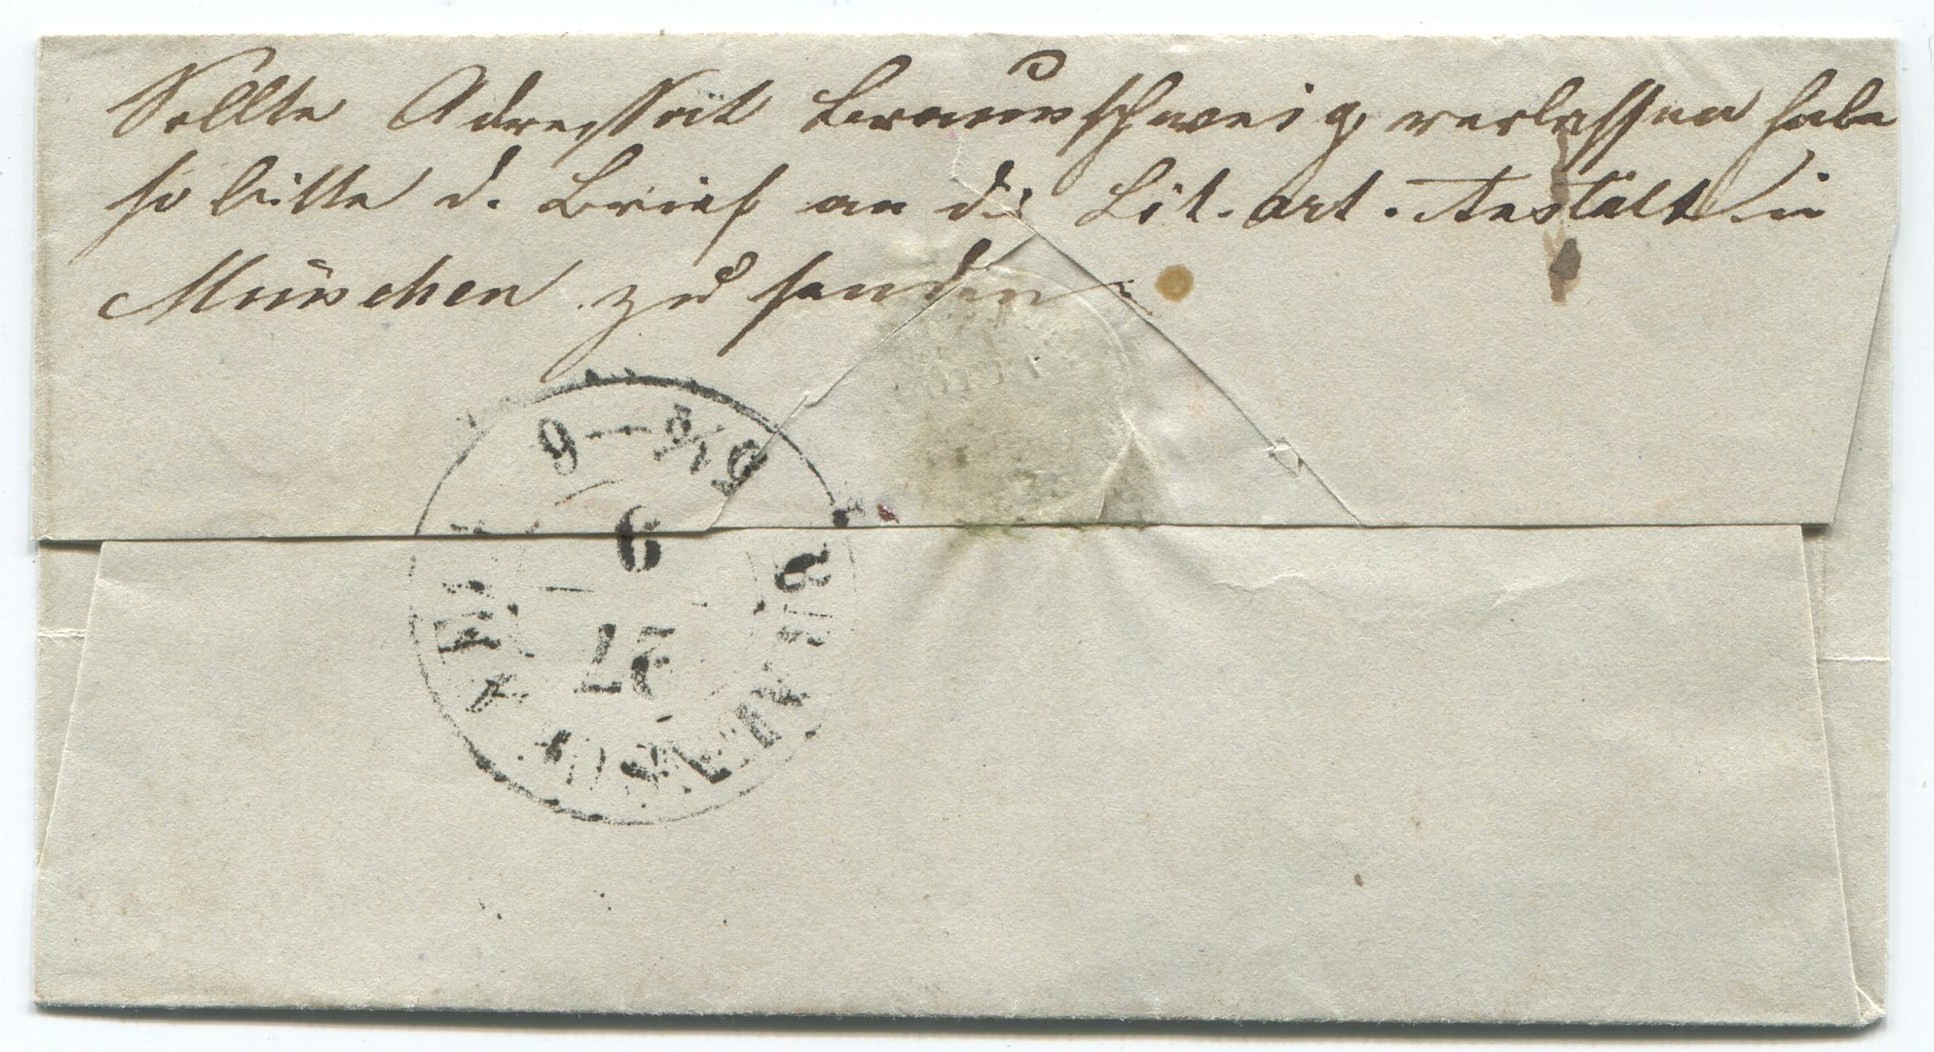 Sollte Adressat Braunschweig verlassen habe
so bitte d. Brief an die Lit. art. Anstalt in
München zu senden.
5½—6
9
27